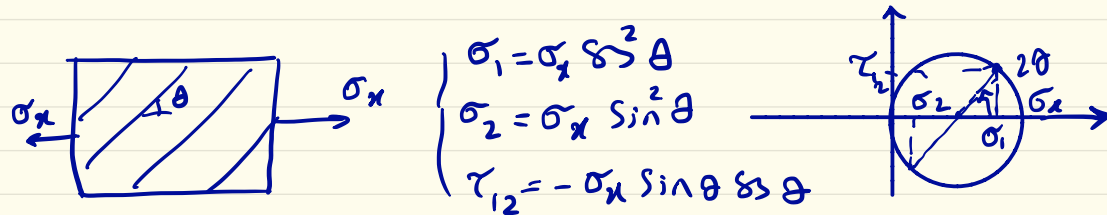 σx θ σx
σ₁ = σx cos² θ
σ₂ = σx sin² θ
τ₁₂ = - σx sin θ cos θ
τ₁₂ σ₂ 2θ σ₁ σx